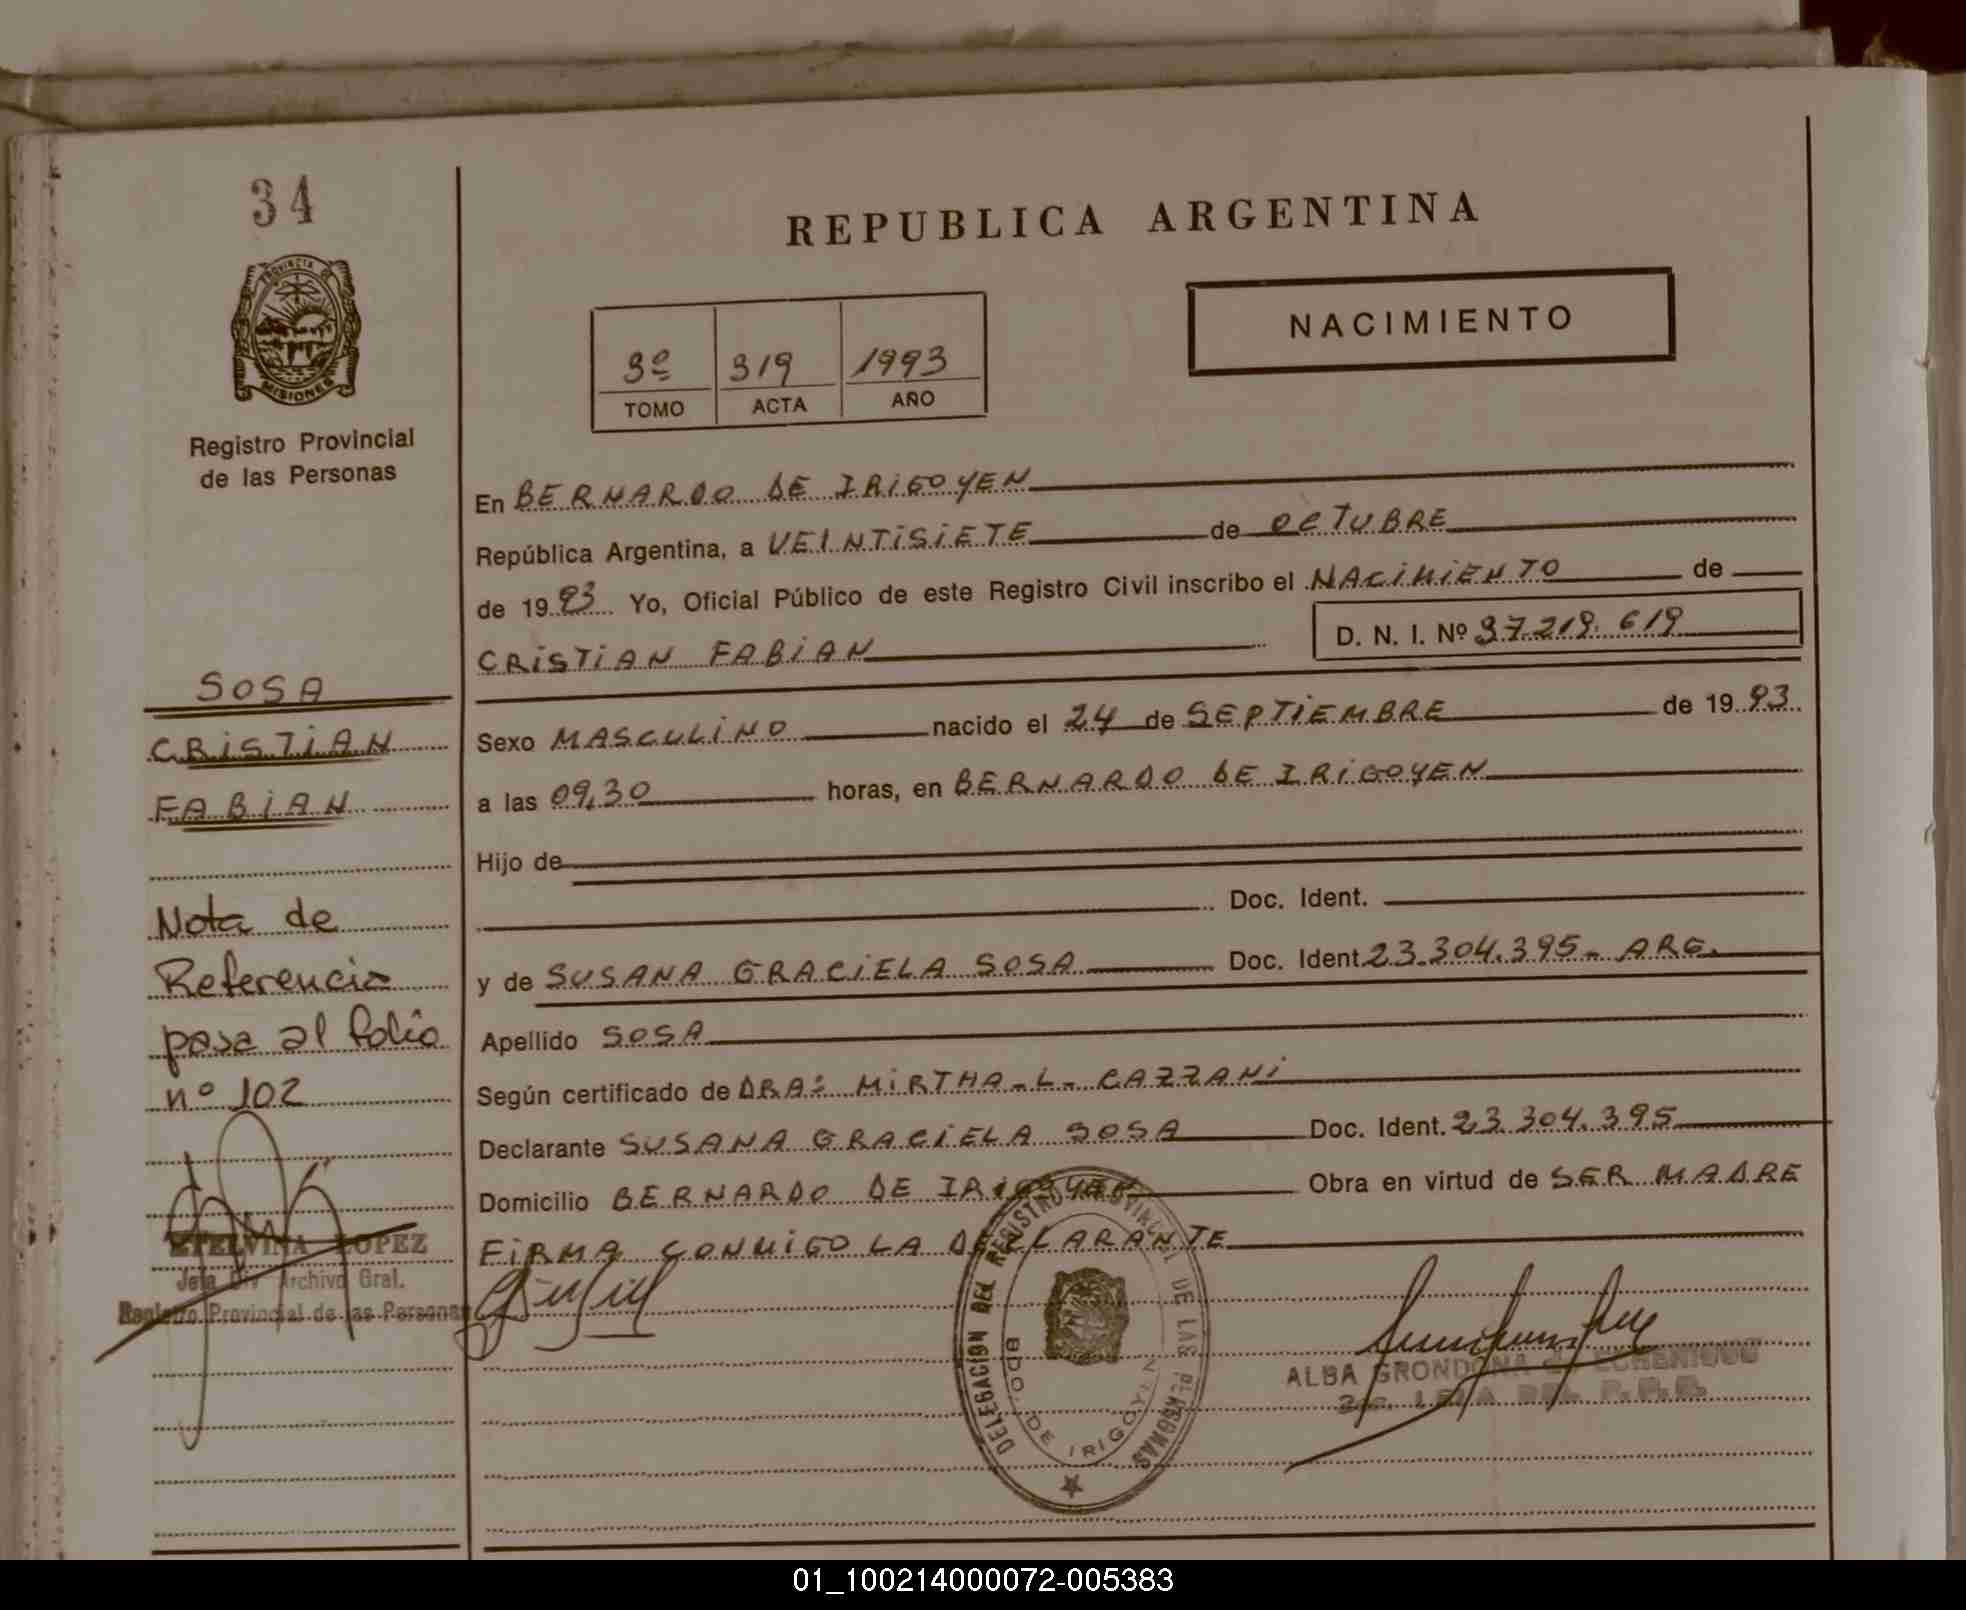 34
PROVINCIA DE
MISIONES
Registro Provincial
de las Personas
REPUBLICA ARGENTINA
NACIMIENTO
3º 319 1993
TOMO ACTA AÑO
En BERNARDO DE IRIGOYEN
República Argentina, a VEINTISIETE de OCTUBRE
de 1993 Yo, Oficial Público de este Registro Civil inscribo el NACIMIENTO de
CRISTIAN FABIAN D. N. I. Nº 37.219.619
Sexo MASCULINO nacido el 24 de SEPTIEMBRE de 1993
a las 09,30 horas, en BERNARDO DE IRIGOYEN
Hijo de
Doc. Ident.
y de SUSANA GRACIELA SOSA Doc. Ident. 23.304.395- ARG.
Apellido SOSA
Según certificado de DRA: MIRTHA-L- CAZZANI
Declarante SUSANA GRACIELA SOSA Doc. Ident. 23.304.395
Domicilio BERNARDO DE IRIGOYEN Obra en virtud de SER MADRE
FIRMA CONMIGO LA DECLARANTE
SOSA
CRISTIAN
FABIAN
Nota de
Referencia
pasa al folio
nº 102
ETELVINA LOPEZ
Jefa Div Archivo Gral.
Registro Provincial de las Personas
DELEGACIÓN DEL REGISTRO PROVINCIAL DE LAS PERSONAS
BDO. DE IRIGOYEN
ALBA GRONDONA
01_100214000072-005383